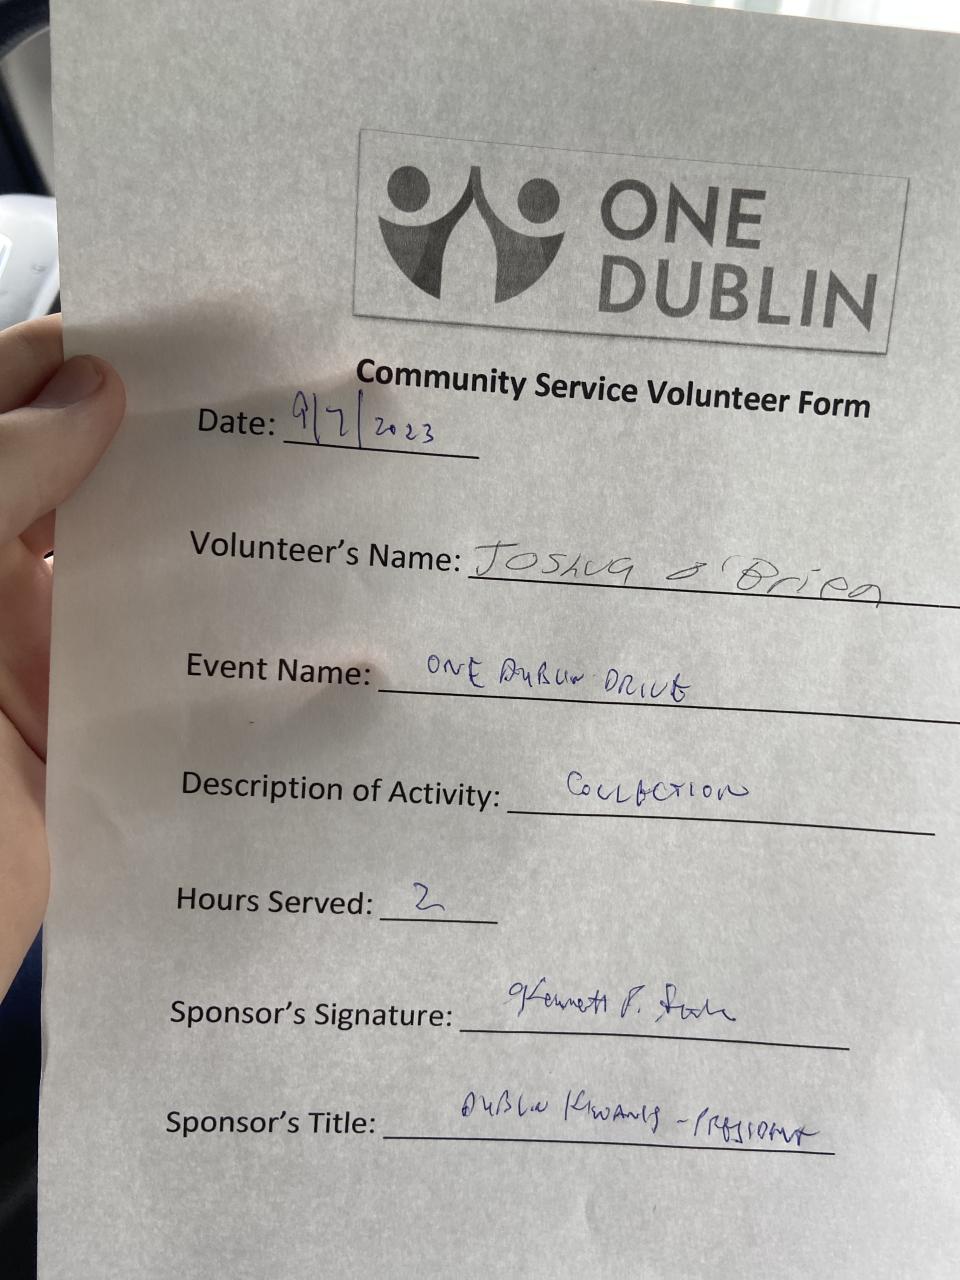 ONE
DUBLIN
Community Service Volunteer Form
Date: 9/7/2023
Volunteer's Name: Joshua O'Brien
Event Name: ONE DUBLIN DRIVE
Description of Activity: COLLECTION
Hours Served: 2
Sponsor's Signature: Kenneth P.
Sponsor's Title: DUBLIN KIWANIS - PRESIDENT